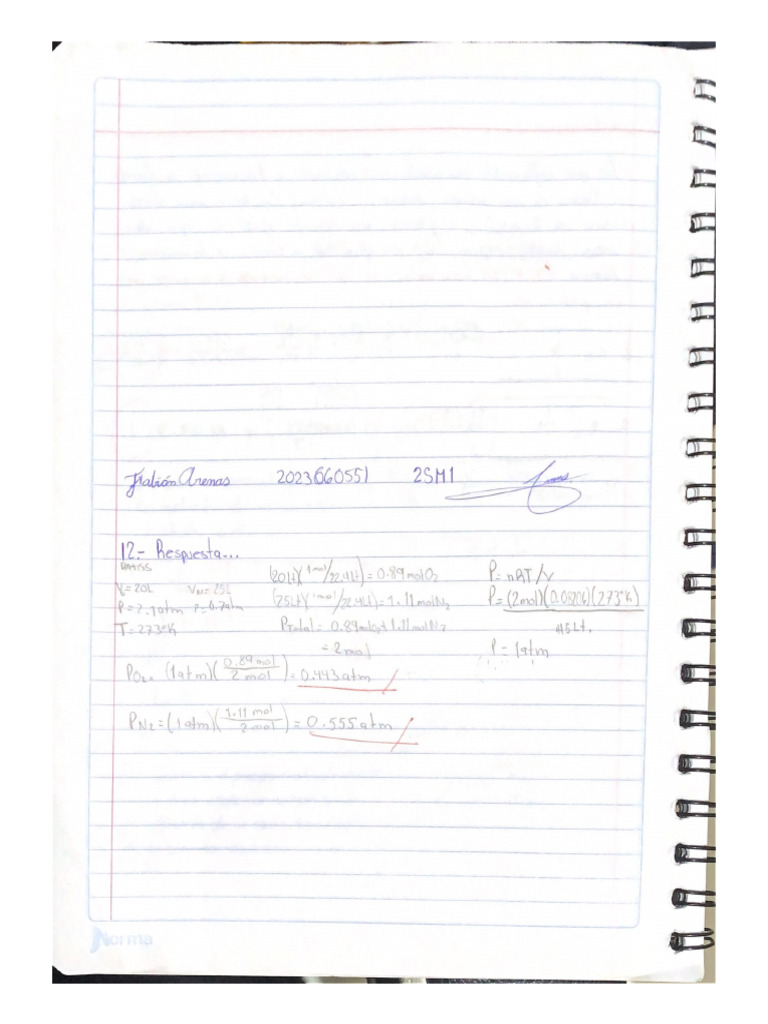 Fabián Arenas 2023660551 2SM1
12.- Respuesta...
V=20L
P=2.1atm P=0.7atm
T=273°K
(20Lt)(1mol/22.4Lt)=0.89molO2
(25Lt)(1mol/22.4Lt)=1.11molN2
PTotal= 0.89molO2+1.11molN2
=2mol
P=nRT/V
P=(2mol)(0.08206)(273°K)
45Lt.
P=1atm
PO2= (1atm)(0.89mol/2mol)=0.443atm
PN2=(1atm)(1.11mol/2mol)=0.555atm
Norma